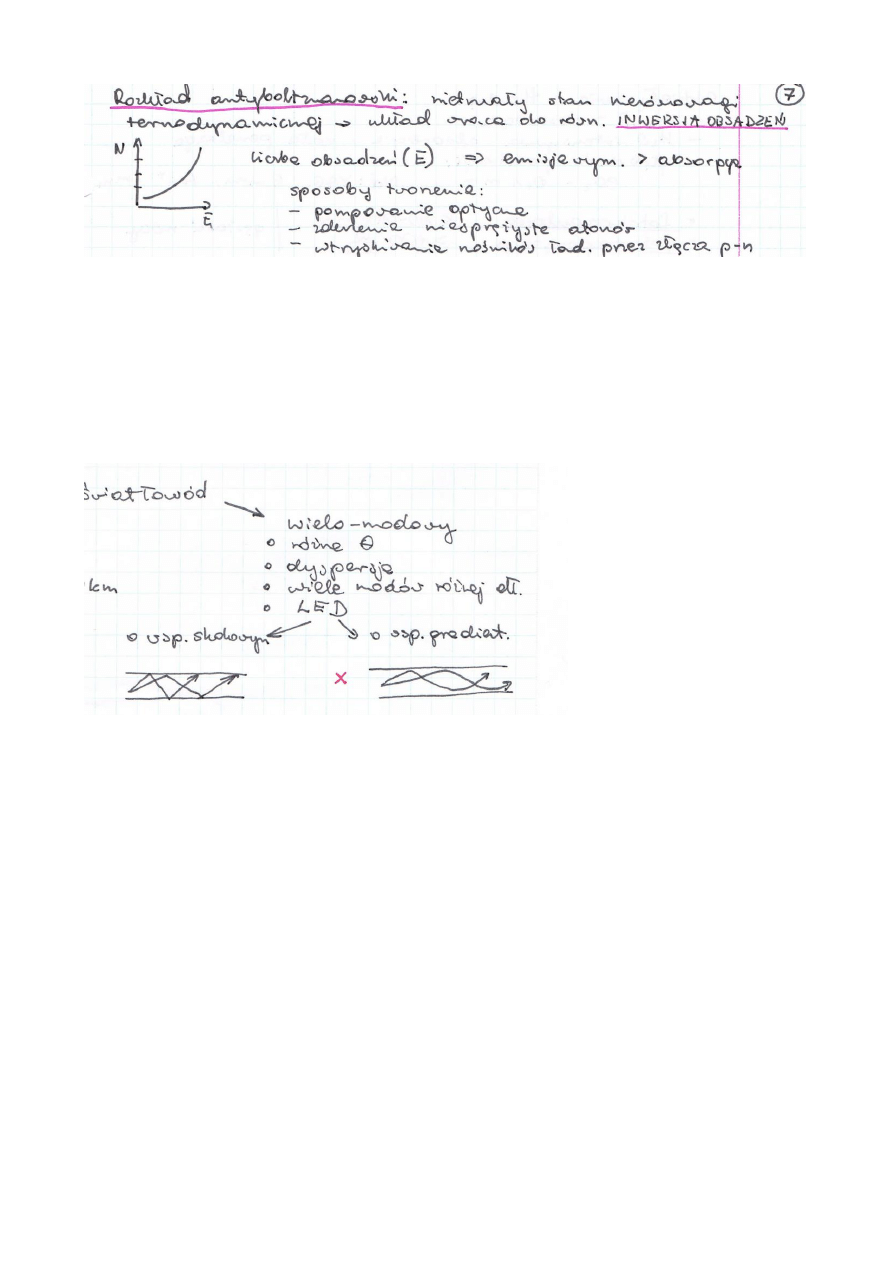 Rozkład antyboltzmanowski: nietrwały stan nierównowagi 7
termodynamicznej → układ wraca do równ. INWERSJA OBSADZEŃ
N
liczba obsadzeń (E) => emisja wym. > absorpcja
E
sposoby tworzenia:
- pompowanie optyczne
- zderzenie niesprężyste atomów
- wtryskiwanie nośników ład. przez złącza p-n
światłowód
wielo-modowy
o różne θ
o dyspersja
km o wiele modów różnej dł.
o LED
o wsp. skokowym o wsp. gradient.
x